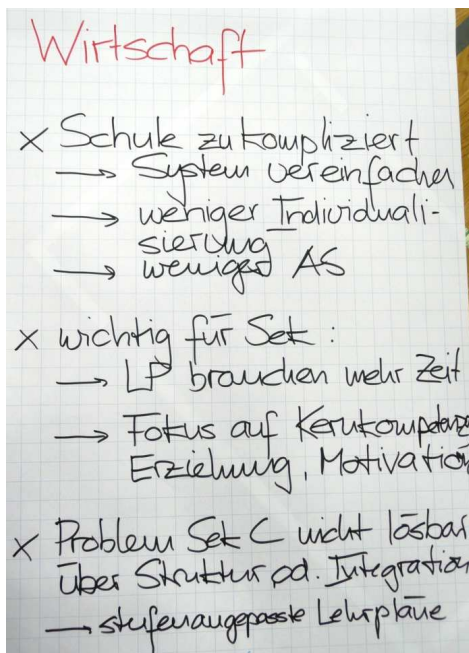 Wirtschaft
x Schule zu kompliziert
→ System vereinfachen
→ weniger Individuali-
sierung
→ weniger AS
x wichtig für Sek :
→ LP brauchen mehr Zeit
→ Fokus auf Kernkompetenz
Erziehung, Motivation
x Problem Sek C nicht lösbar
über Struktur od. Integration
→ stufenangepasste Lehrpläne